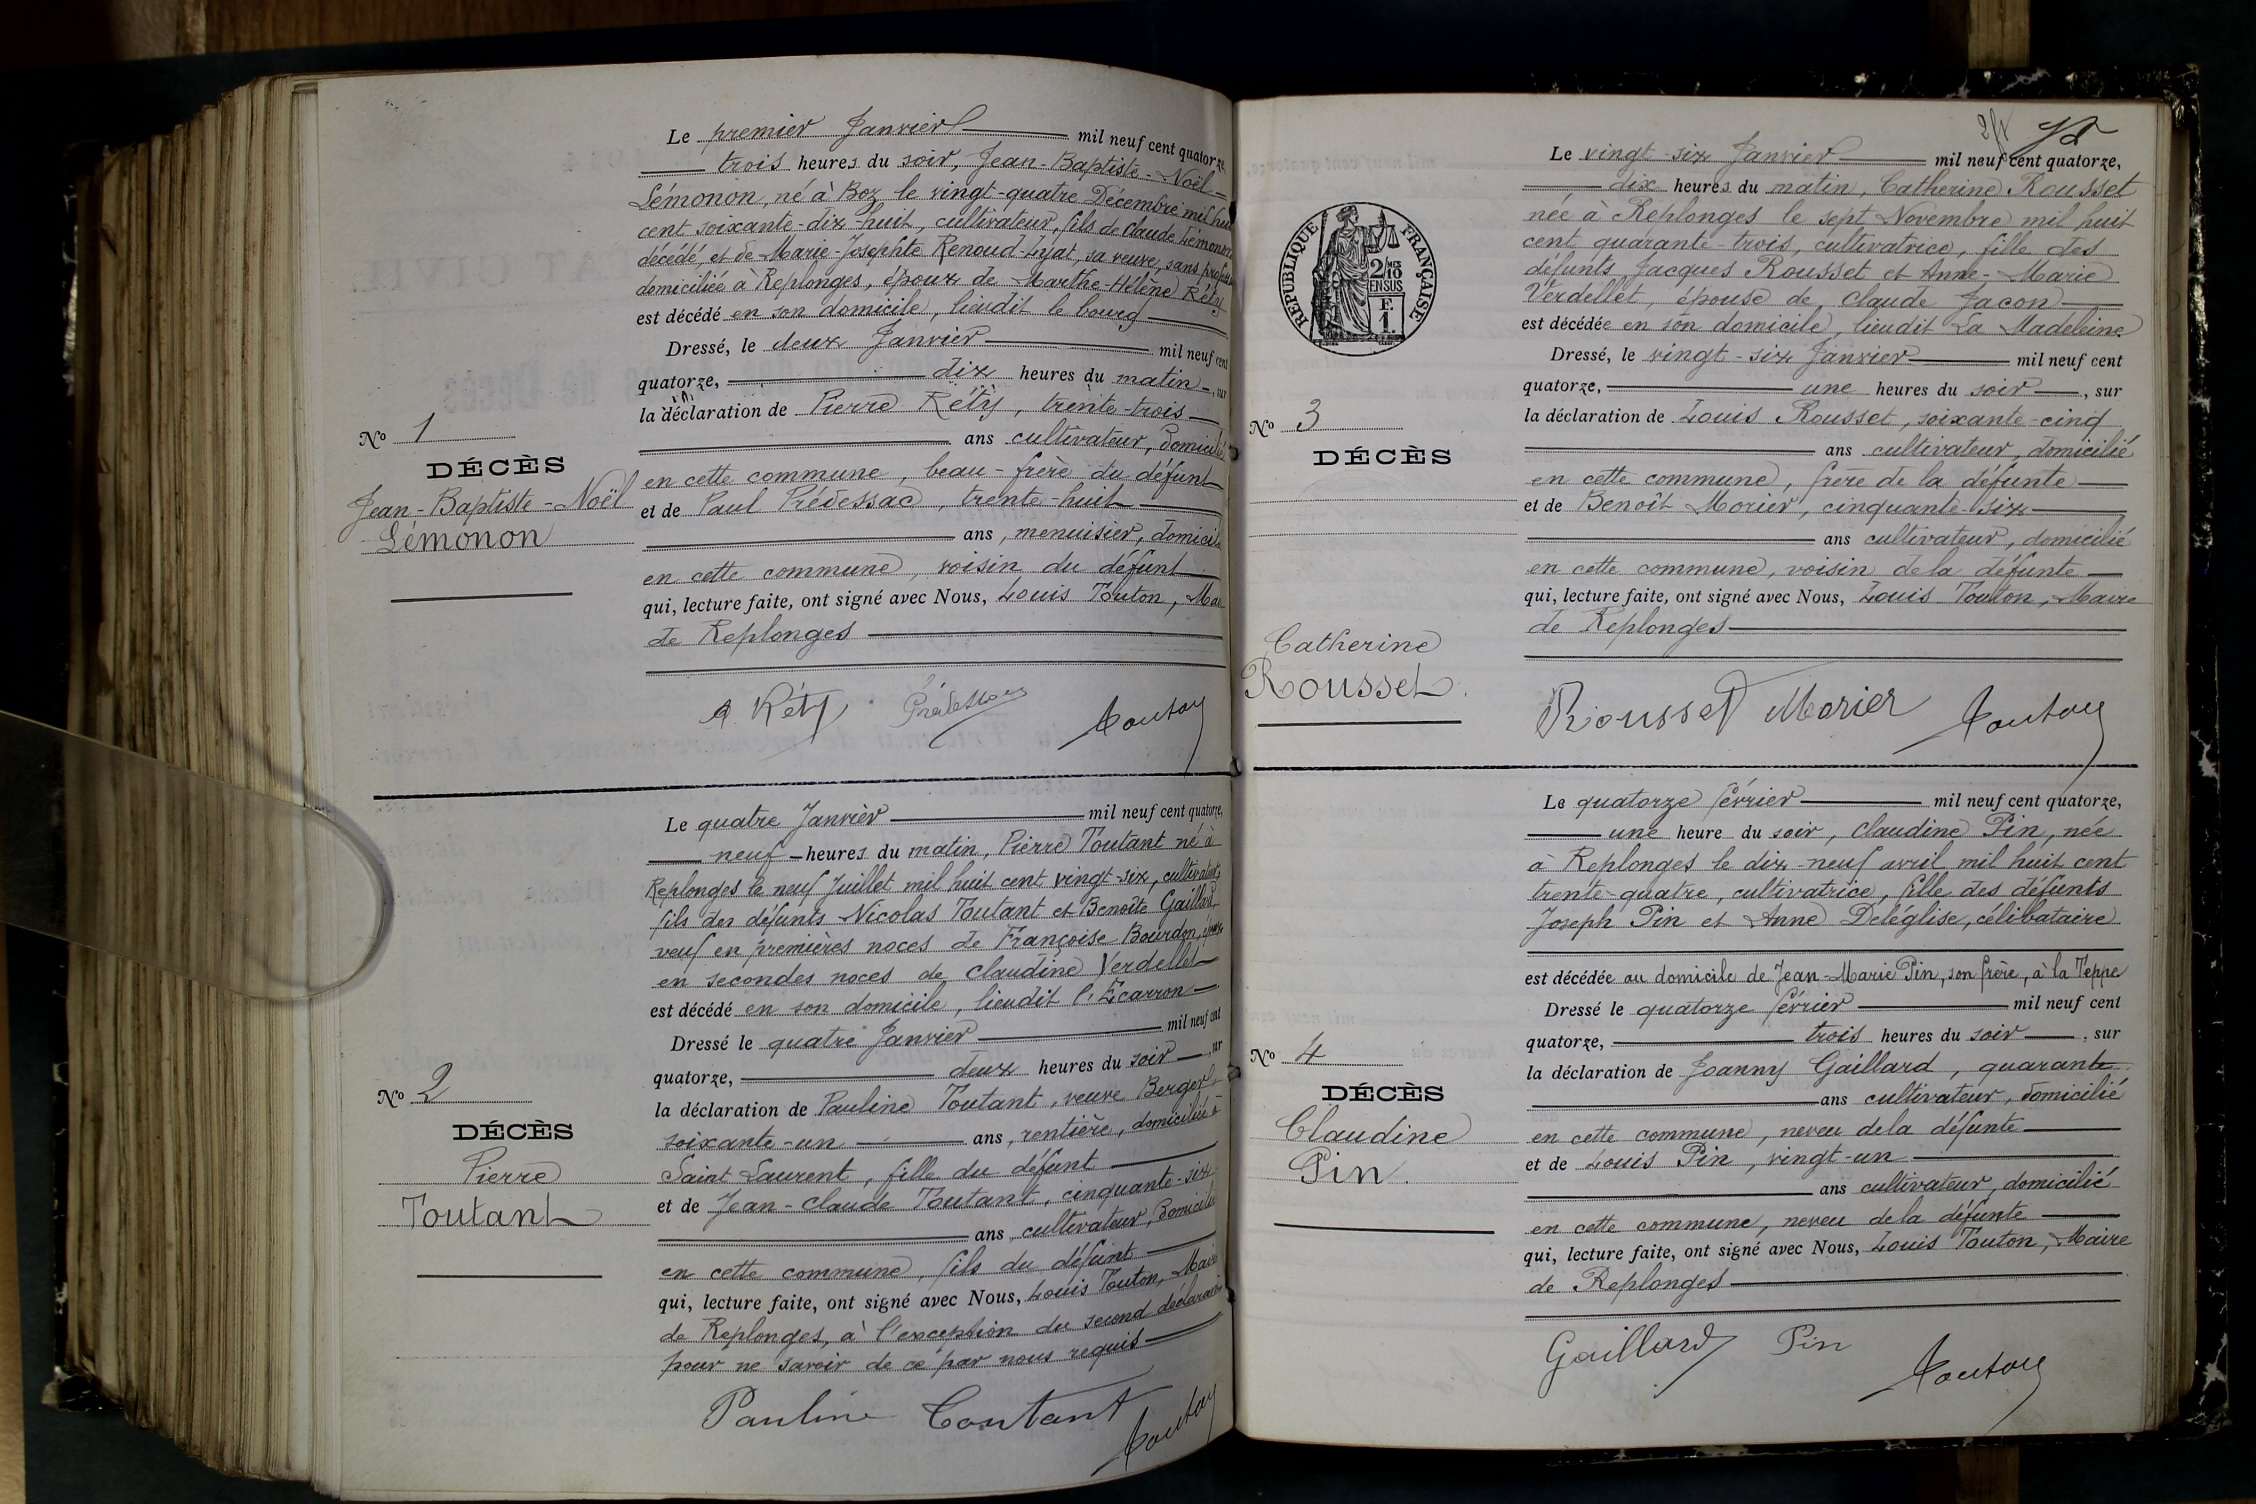 Le premier Janvier mil neuf cent quatorze,
trois heures du soir, Jean-Baptiste-Noël
Lémonon, né à Boz le vingt-quatre Décembre mil huit
cent soixante-dix-huit, cultivateur, fils de Claude Lémonon
décédé, et de Marie-Josephte Renoud-Lyat, sa veuve, sans
domiciliée à Replonges, époux de Marthe-Hélène Réty
est décédé en son domicile, lieudit le bourg
Dressé, le deux Janvier mil neuf cent
quatorze, dix heures du matin, sur
la déclaration de Pierre Réty, trente-trois
ans cultivateur, domicilié
en cette commune, beau-frère du défunt
et de Paul Prédessac, trente-huit
ans, menuisier, domicilié
en cette commune, voisin du défunt
qui, lecture faite, ont signé avec Nous, Louis Touton, Maire
de Replonges
Nº 1
DÉCÈS
Jean-Baptiste-Noël
Lémonon
Réty Touton
Le quatre Janvier mil neuf cent quatorze,
neuf heures du matin, Pierre Toutant né à
Replonges le neuf Juillet mil huit cent vingt-six, cultivateur,
fils des défunts Nicolas Toutant et Benoîte Gaillard,
veuf en premières noces de Françoise Bourdon, époux
en secondes noces de Claudine Verdellet
est décédé en son domicile, lieudit l'Ecarron
Dressé le quatre Janvier mil neuf cent
quatorze, deux heures du soir, sur
la déclaration de Pauline Toutant, veuve Berger
soixante-un ans, rentière, domiciliée à
Saint Laurent, fille du défunt
et de Jean-Claude Toutant, cinquante-six
ans cultivateur, domicilié
en cette commune, fils du défunt
qui, lecture faite, ont signé avec Nous, Louis Touton, Maire
de Replonges, à l'exception du second déclarant
pour ne savoir de ce par nous requis
Nº 2
DÉCÈS
Pierre
Toutant
Pauline Toutant Touton
RÉPUBLIQUE FRANÇAISE
2/10 EN SUS
F.
1.
Le vingt-six Janvier mil neuf cent quatorze,
dix heures du matin, Catherine Rousset
née à Replonges le sept Novembre mil huit
cent quarante-trois, cultivatrice, fille des
défunts Jacques Rousset et Anne-Marie
Verdellet, épouse de Claude Jacon
est décédée en son domicile, lieudit La Madeleine
Dressé, le vingt-six Janvier mil neuf cent
quatorze, une heures du soir, sur
la déclaration de Louis Rousset, soixante-cinq
ans cultivateur, domicilié
en cette commune, frère de la défunte
et de Benoît Morier, cinquante-six
ans cultivateur, domicilié
en cette commune, voisin de la défunte
qui, lecture faite, ont signé avec Nous, Louis Touton, Maire
de Replonges
Nº 3
DÉCÈS
Catherine
Rousset
Rousset Morier Touton
Le quatorze février mil neuf cent quatorze,
une heure du soir, Claudine Pin, née
à Replonges le dix-neuf avril mil huit cent
trente-quatre, cultivatrice, fille des défunts
Joseph Pin et Anne Deléglise, célibataire
est décédée au domicile de Jean-Marie Pin, son frère, à la Teppe
Dressé le quatorze février mil neuf cent
quatorze, trois heures du soir, sur
la déclaration de Joanny Gaillard, quarante
ans cultivateur, domicilié
en cette commune, neveu de la défunte
et de Louis Pin, vingt-un
ans cultivateur, domicilié
en cette commune, neveu de la défunte
qui, lecture faite, ont signé avec Nous, Louis Touton, Maire
de Replonges
Nº 4
DÉCÈS
Claudine
Pin.
Gaillard Pin Touton